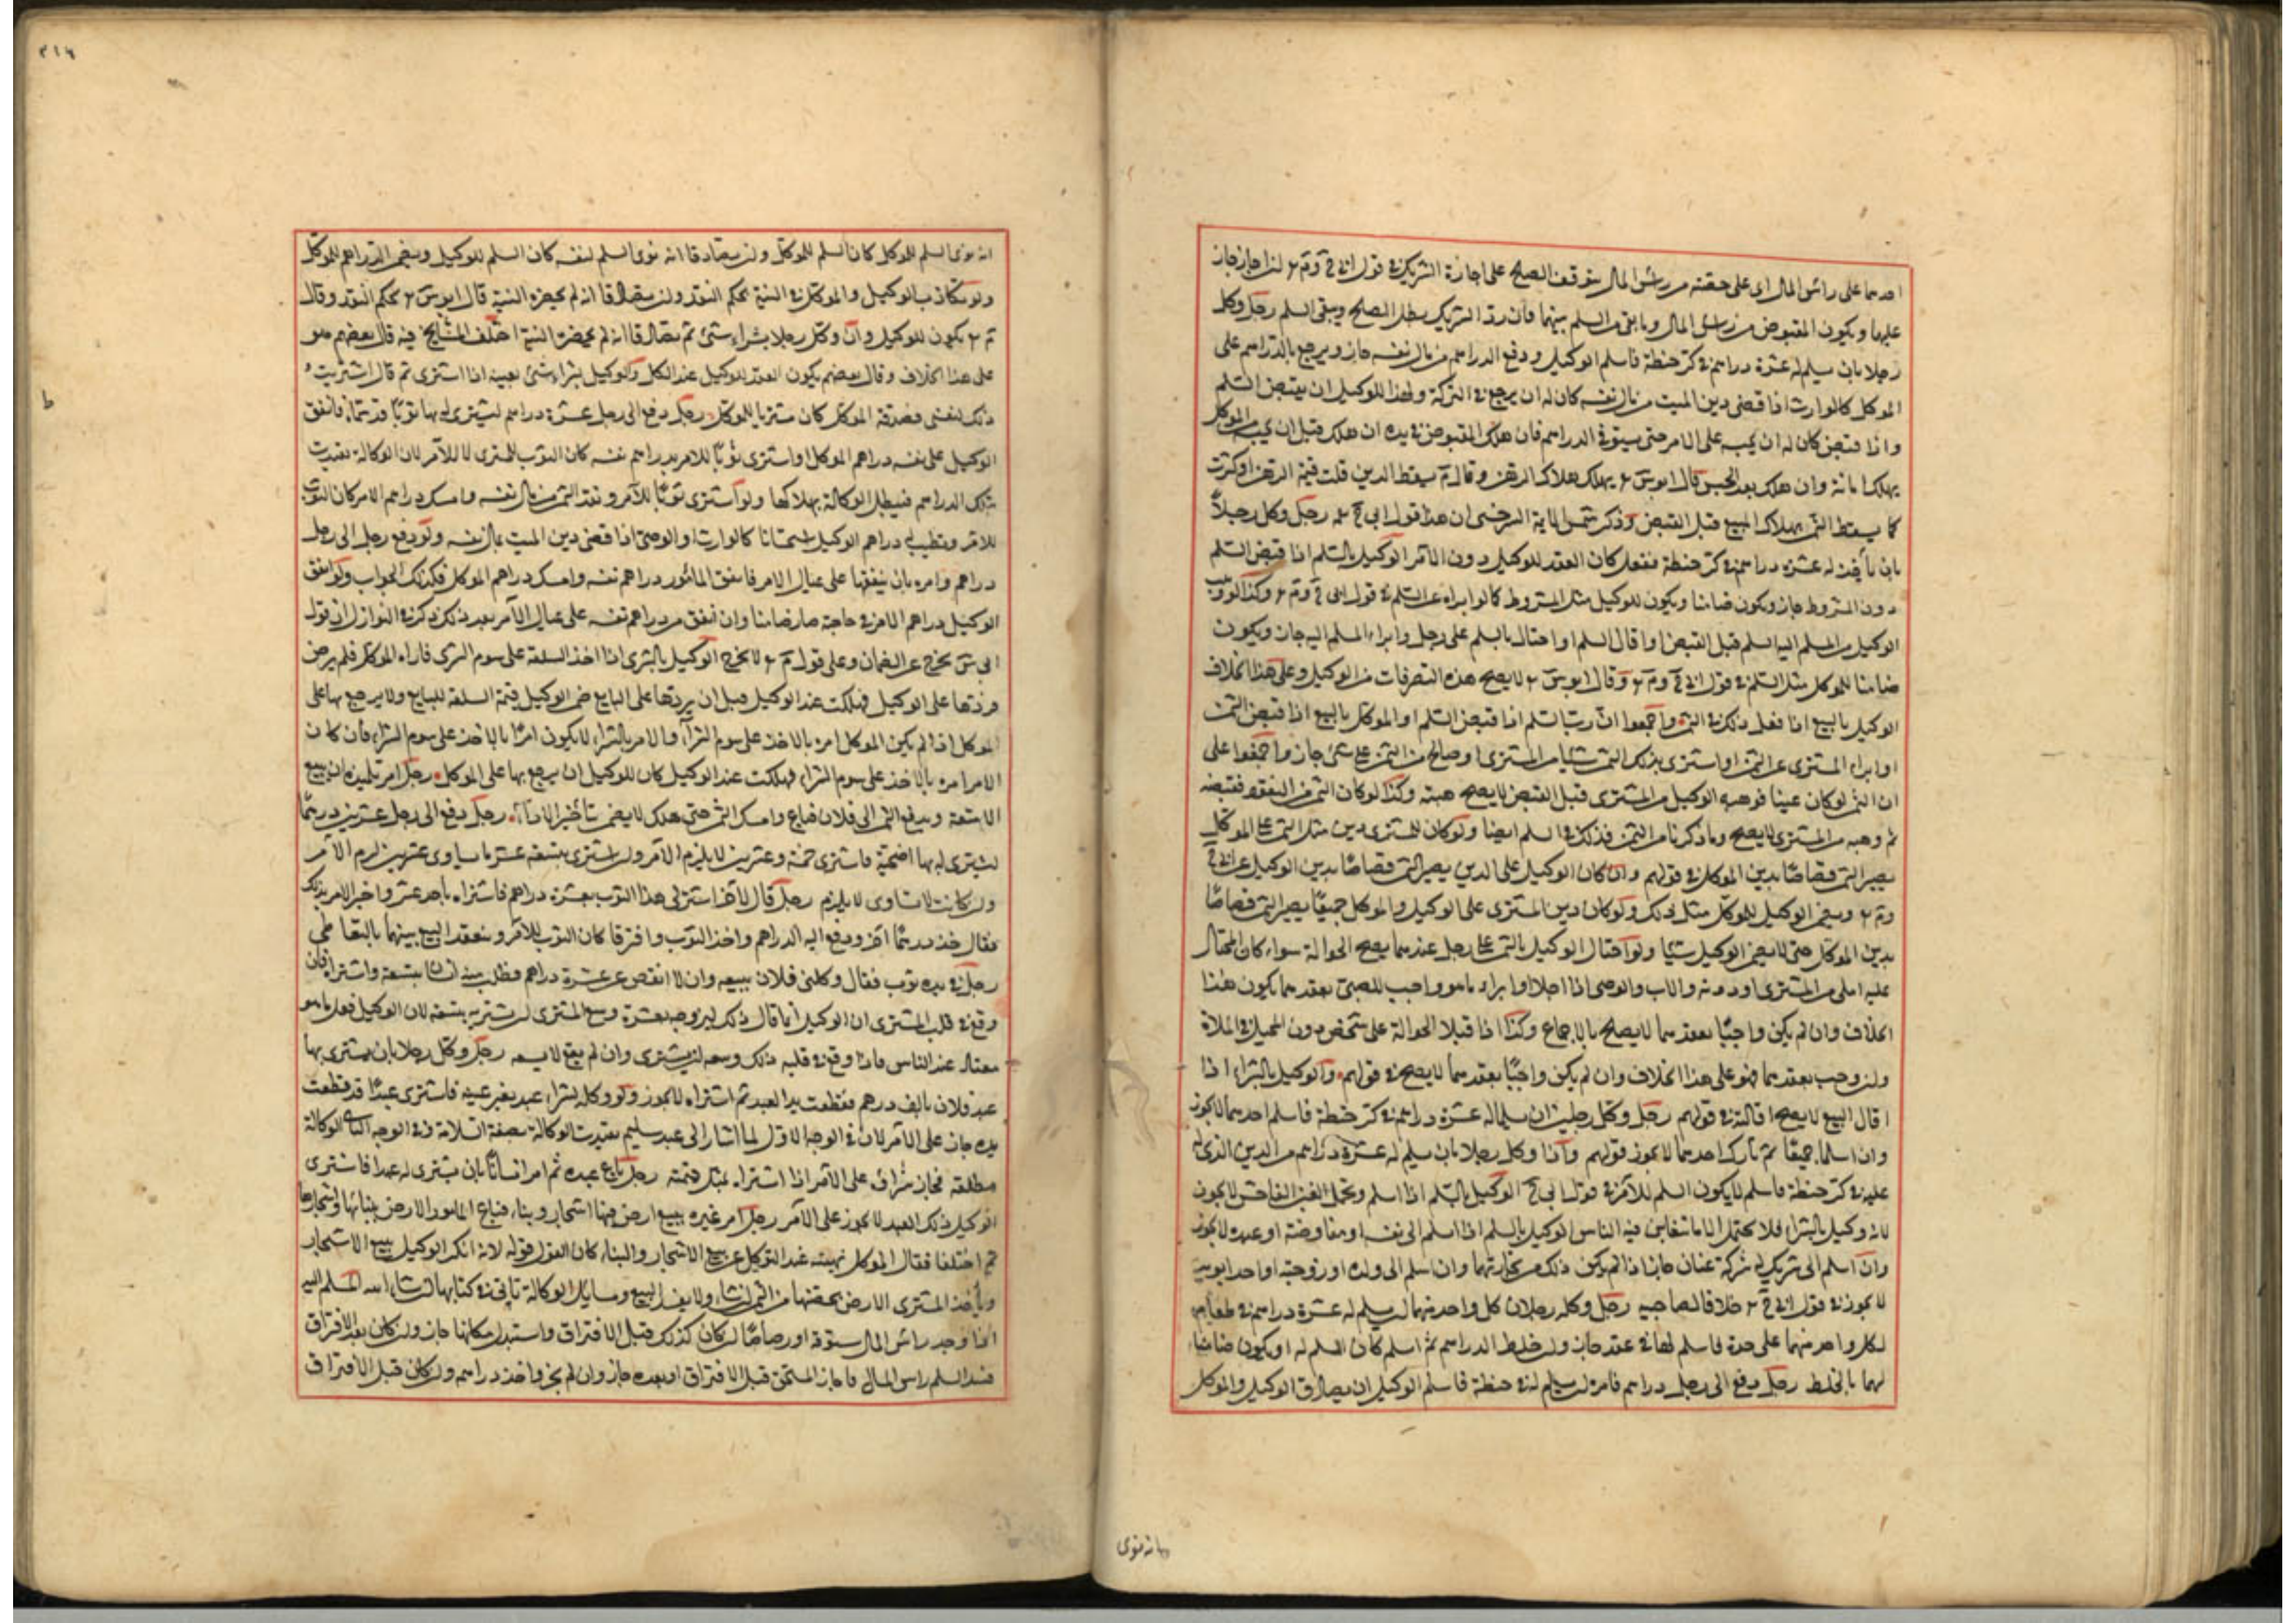 احدهما على رأس المال او على حصته من رأس المال يتوقف الصلح على اجازة الشريك في قول ابي ح وم ان اجاز جاز
عليهما ويكون المقبوض من رأس المال وما بقي من السلم بينهما فان رد الشريك بطل الصلح ويبقى السلم رجل وكل
رجلا بان يسلم له عشرة دراهم في كر حنطة فاسلم الوكيل ودفع الدراهم من مال نفسه جاز ويرجع بالدراهم على
الموكل كالوارث اذا قضى دين الميت من مال نفسه كان له ان يرجع في التركة ولهذا الوكيل ان يقبض السلم
واذا قبض كان له ان يحبسه على الامر حتى يستوفي الدراهم فان هلك المقبوض في يده ان هلك قبل ان يحبسه من الموكل
يهلك امانة وان هلك بعد الحبس قال ابو س يهلك هلاك الرهن وقال م يسقط الدين قلت قيمة الرهن او كثرت
كما يسقط الثمن بهلاك المبيع قبل القبض وذكر شمس الايمة السرخسي ان هذا قول ابي ح رجل وكل رجلا
بان يأخذ له عشرة دراهم في كر حنطة ففعل كان العقد للوكيل دون الآمر الوكيل بالسلم اذا قبض السلم
دون المشروط جاز ويكون ضامنا ويكون للوكيل مثل المشروط كالوابراه عن السلم في قول ابي ح وم وكذا لو وهب
الوكيل من المسلم اليه السلم قبل القبض او اقال السلم او احتال بالسلم على رجل وابراء المسلم اليه جاز ويكون
ضامنا للموكل مثل السلم في قول ابي ح وم وقال ابو س لا يصح هذه التصرفات من الوكيل وعلى هذا الخلاف
الوكيل بالبيع اذا فعل ذلك في الثمن واجمعوا ان رب السلم اذا قبض السلم او الموكل بالبيع اذا قبض الثمن
او ابراء المشتري عن الثمن او اشترى بذلك الثمن شيئا من المشتري او صالح من الثمن على شئ جاز واجمعوا على
ان الثمن لو كان عينا فوهبه الوكيل من المشتري قبل القبض لا يصح هبته وكذا لو كان الثمن من النقود فقبضه
ثم وهبه من المشتري لا يصح وما ذكرنا من الثمن فذلك في السلم ايضا ولو كان للمشتري دين مثل الثمن على الموكل
يصير الثمن قصاصا بدين الموكل في قولهم وان كان للوكيل على الدين يصير الثمن قصاصا بدين الوكيل عند ابي ح
وم ويضمن الوكيل للموكل مثل ذلك ولو كان دين المشتري على الوكيل والموكل جميعا يصير الثمن قصاصا
بدين الموكل حتى لا يضمن الوكيل شيئا ولو احتال الوكيل بالثمن على رجل عندهما يصح الحوالة سواء كان المحتال
عليه املى من المشتري او دونه والاب والوصي اذا اجلا او ابراء ما هو واجب للصبي بعقدهما يكون هذا
الخلاف وان لم يكن واجبا بعقدهما لا يصلح بالاجماع وكذا اذا قبلا الحوالة على شخص دون المحيل في الملاة
وان وجب بعقدهما فهو على هذا الخلاف وان لم يكن واجبا بعقدهما لا يصح في قولهم والوكيل بالشراء اذا
اقال البيع لا يصح اقالته في قولهم رجل وكل رجلين ان يسلما له عشرة دراهم في كر حنطة فاسلم احدهما لا يجوز
وان اسلما جميعا ثم تارك احدهما لا يجوز في قولهم واذا وكل رجلا بان يسلم له عشرة دراهم من الدين الذي له
عليه في كر حنطة فاسلم لا يكون السلم للآمر في قول ابي ح الوكيل بالسلم اذا اسلم وتحمل الغبن الفاحش لا يجوز
لانه وكيل بالشراء فلا يحتمل الا ما يتغابن فيه الناس الوكيل بالسلم اذا اسلم الى نفسه او مفاوضه او عبده لا يجوز
وان اسلم الى شريك له شركة عنان جاز اذا لم يكن ذلك من تجارتهما وان اسلم الى ولده او زوجته او احد ابويه
لا يجوز في قول ابي ح خلافا لصاحبيه رجل وكله رجلان كل واحد منهما ان يسلم له عشرة دراهم في طعام
لكل واحد منهما على حدة فاسلم لهما في عقد جاز وان خلط الدراهم ثم اسلم كان السلم له او يكون ضامنا
لهما بالخلط رجل دفع الى رجل دراهم فامره ان يسلم له في حنطة فاسلم الوكيل ان تصادق الوكيل والموكل
انه نوى
٣١٦
انه نوى السلم للموكل كان السلم للموكل وان تصادقا انه نوى السلم لنفسه كان السلم للوكيل ويضمن الدراهم للموكل
ولو تكاذب الوكيل والموكل في النية يحكم النقد وان تصادقا انه لم يحضره النية قال ابو س يحكم النقد وقال
م يكون للوكيل وان وكل رجلا بشراء شئ ثم تصادقا انه لم يحضره النية اختلف المشايخ فيه قال بعضهم هو
على هذا الخلاف وقال بعضهم يكون العقد للوكيل عند الكل والوكيل بشراء شئ بعينه اذا اشترى ثم قال اشتريت
ذلك لنفسي فصدقه الموكل كان مشتريا للموكل رجل دفع الى رجل عشرة دراهم ليشتري له بها ثوبا قد سماه فانفق
الوكيل على نفسه دراهم الموكل واشترى ثوبا للآمر بدراهم نفسه كان الثوب للمشتري لا للآمر لان الوكالة تقيدت
بتلك الدراهم فيبطل الوكالة بهلاكها ولو اشترى ثوبا للآمر ونقد الثمن من مال نفسه وامسك دراهم الامر كان الثوب
للآمر وتطيب له دراهم الوكيل استحسانا كالوارث او الوصي اذا قضى دين الميت بمال نفسه ولو دفع رجل الى رجل
دراهم وامره بان ينفقها على عيال الامر فانفق المأمور دراهم نفسه وامسك دراهم الموكل فكذلك الجواب ولو انفق
الوكيل دراهم الامر في حاجته صار ضامنا وان انفق من دراهم نفسه على عيال الآمر بعد ذلك ذكر في النوازل ان في قول
ابي س يخرج عن الضمان وعلى قول م لا يخرج الوكيل بالشرى اذا اخذ السلعة على سوم الشرى فاراه الموكل فلم يرض
وردها على الوكيل فهلكت عند الوكيل قبل ان يردها على البايع ضمن الوكيل قيمة السلعة للبايع ولا يرجع بها على
الموكل اذا لم يكن الموكل امره بالاخذ على سوم الشراء والامر بالشراء لا يكون امرا بالاخذ على سوم الشراء فان كان
الامر امره بالاخذ على سوم الشراء فهلكت عند الوكيل كان للوكيل ان يرجع بها على الموكل رجل امر تلميذه ان يبيع
الامتعة ويدفع الثمن الى فلان فباع وامسك الثمن حتى هلك لا يضمن بتأخير الاداء رجل دفع الى رجل عشرين درهما
ليشتري له بها اضحية فاشترى بخمسة وعشرين لا يلزم الآمر وان اشترى بتسعة عشر ما يساوي عشرين لزم الآمر
وان كانت لا تساوي لا يلزم رجل قال لآخر اشتر لي هذا الثوب بعشرة دراهم فاشتراه باحد عشر واخبر الامر بذلك
فقال خذ درهما آخر ودفع اليه الدراهم واخذ الثوب وافترقا كان الثوب للآمر وينعقد البيع بينهما بالتعاطي
رجل في يده ثوب فقال وكلني فلان ببيعه وان لا انقص عن عشرة دراهم فطلب منه انسان بتسعة واشتراه فان
وقع في قلب المشتري ان الوكيل انما قال ذلك ليروجه بعشرة وسع المشتري ان يشتريه بتسعة لان الوكيل فعل ما هو
معتاد عند الناس فاذا وقع في قلبه ذلك وسعه ان يشتري وان لم يقع لا يسعه رجل وكل رجلا بان يشتري بها
عبد فلان بالف درهم فقطعت يد العبد ثم اشتراه لا يجوز ولو وكله بشراء عبد بغير عينه فاشترى عبدا قد قطعت
يده جاز على الآمر لان في الوجه الاول لما اشار الى عبد سليم تقيدت الوكالة بصفة السلامة وفي الوجه الثاني الوكالة
مطلقة فجاز شراؤه على الآمر اذا اشتراه بمثل قيمته رجل باع عبده ثم امر انسانا بان يشتري له عبدا فاشترى
الوكيل ذلك العبد لا يجوز على الآمر رجل امر غيره ببيع ارض فيها اشجار وبناء فباع المأمور الارض ببنائها واشجارها
ثم اختلفا فقال الموكل نهيته عند التوكيل عن بيع الاشجار والبناء كان القول قوله لانه انكر الوكيل ببيع الاشجار
ويأخذ المشتري الارض بحصتها من الثمن ان شاء ولا يفسد البيع ومسايل الوكالة تأتي في كتابها ان شاء الله المسلم اليه
اذا وجد رأس المال ستوقة او رصاصا ان كان كذلك قبل الافتراق واستبدل مكانها جاز وان كان بعد الافتراق
فسد السلم رأس المال فاجاز المستحق قبل الافتراق او بعده جاز وان لم يجز واخذ دراهمه وان كان قبل الافتراق